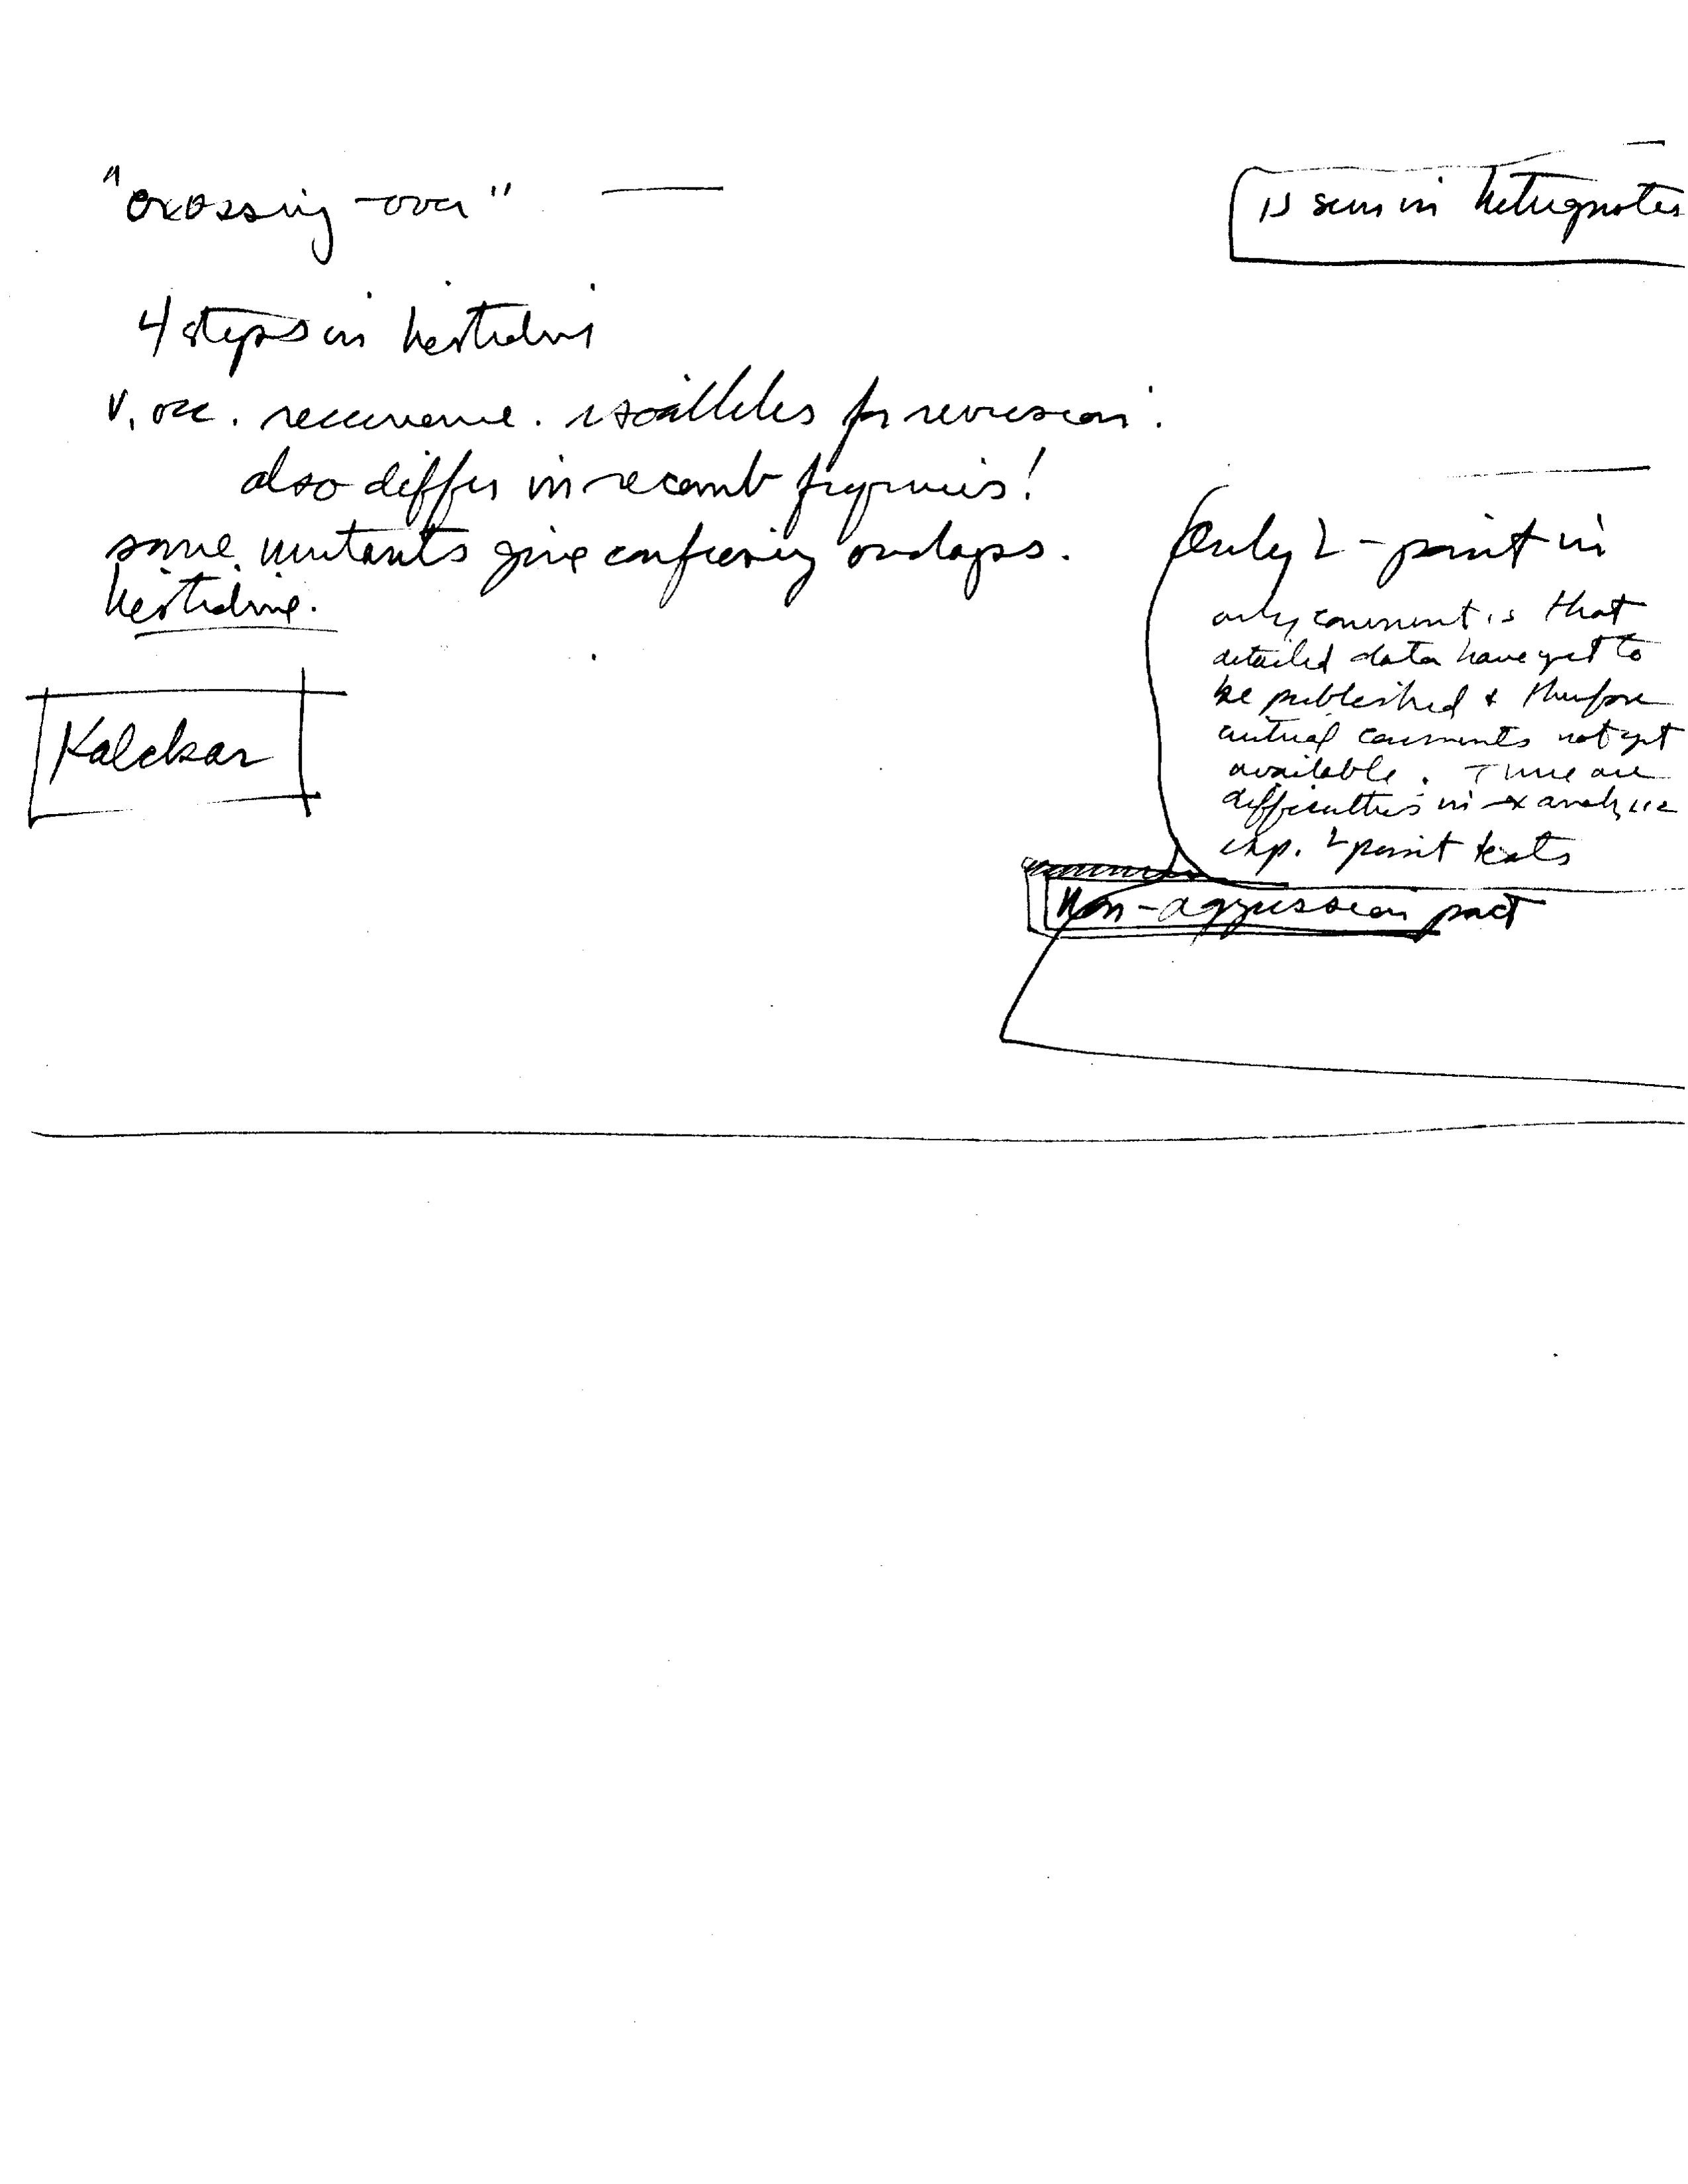 "crossing-over" ——
is seen in heterogenotes
4 steps in histidine
v. occ. recurrence. isoalleles for reversion.
also differ in recomb frequencies!
some mutants give confusing overlaps.
histidine.
Kalckar
Only 2-point in
only comment is that
detailed data have yet to
be published & therefore
critical comments not yet
available. There are
difficulties in
esp. 2 point tests
Non-aggression pact